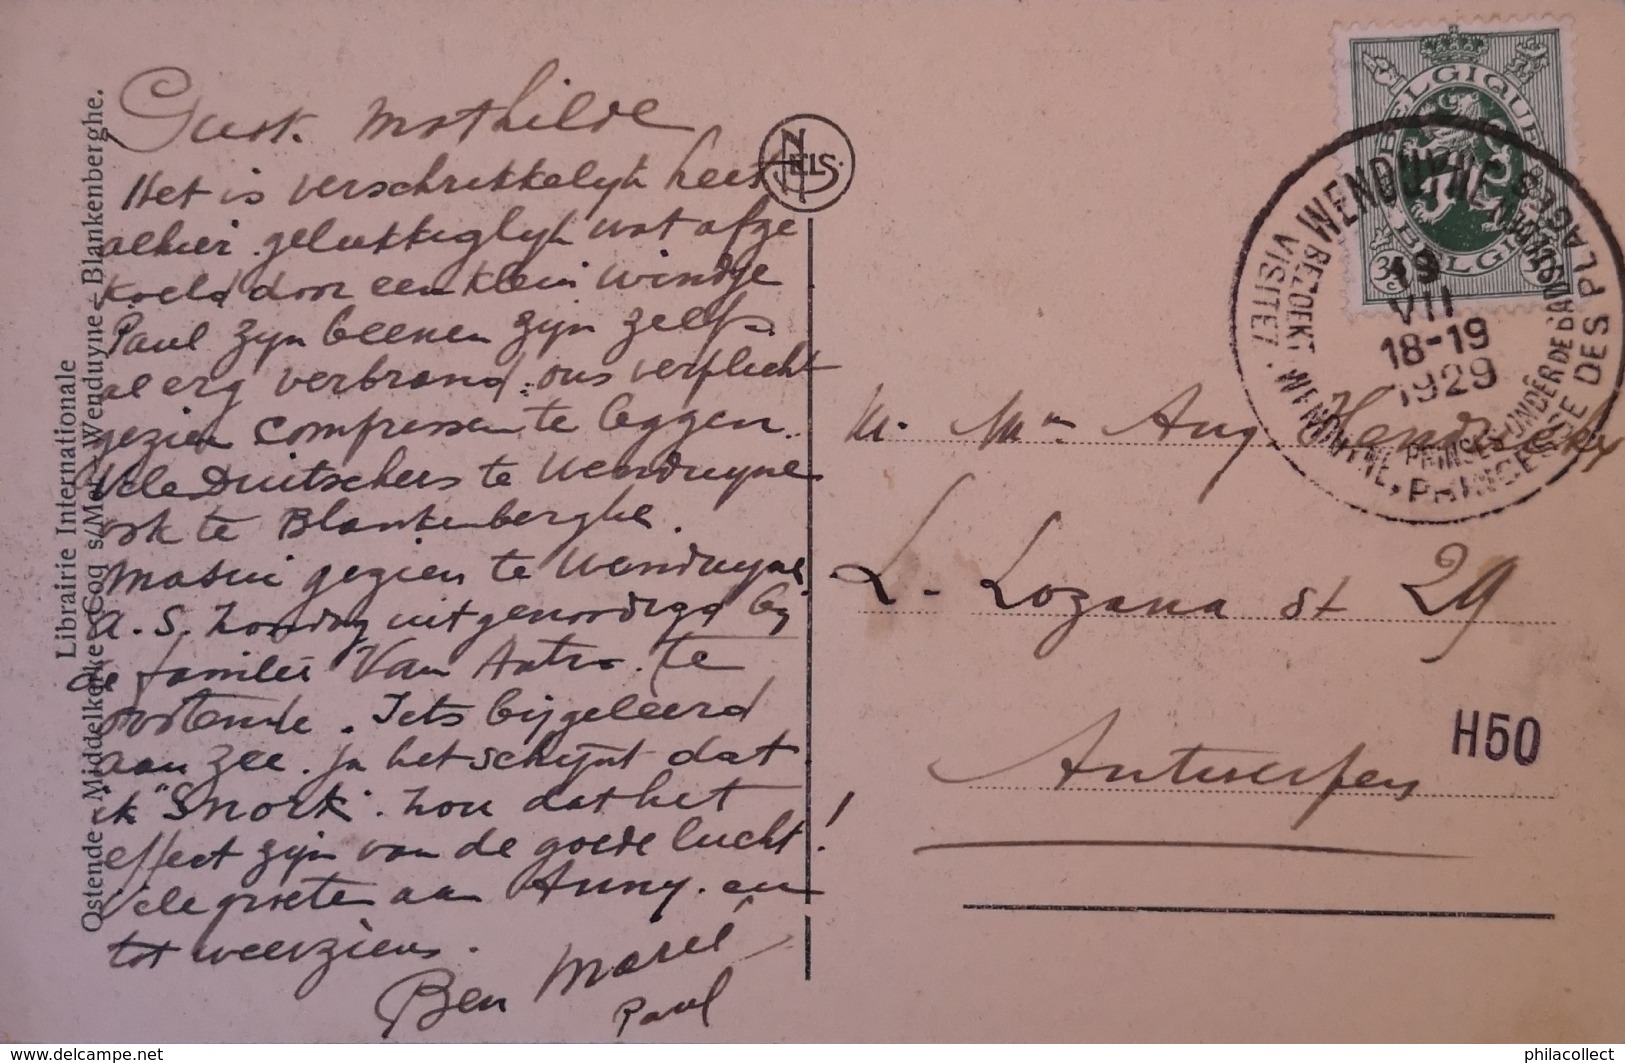 Gust. Mathilde
Het is verschrikkelijk heet
alhier gelukkiglijk wat afge
koeld door een klein windje
Paul zijn beenen zijn zelfs
al erg verbrand. ons verplicht
gezien compressen te leggen.
Vele Duitschers te Wenduyne
ook te Blankenberghe.
gezien te Wenduyne
a. S. Zondag uitgenoodigd bij
de familie Van te
Oostende. Iets bijgeleerd
aan zee. ja het schijnt dat
ik "Snork". Zou dat het
effect zijn van de goede lucht!
Vele groeten aan Anny. en
tot weerziens.
Ben Marcel
Paul
Librairie Internationale
Ostende - Middelkerke - Coq s/Mer - Wenduyne - Blankenberghe.
NELS
BELGIQUE
BELGIË
WENDUYNE
19
VII
18-19
1929
BEZOEKT WENDUYNE, PRINSES ONDER DE BADSTEDEN
VISITEZ WENDUYNE, PRINCESSE DES PLAGES
M. Mme Aug. Hendrickx
L. Lozana st 29
Antwerpen
H50
© delcampe.net
philacollect